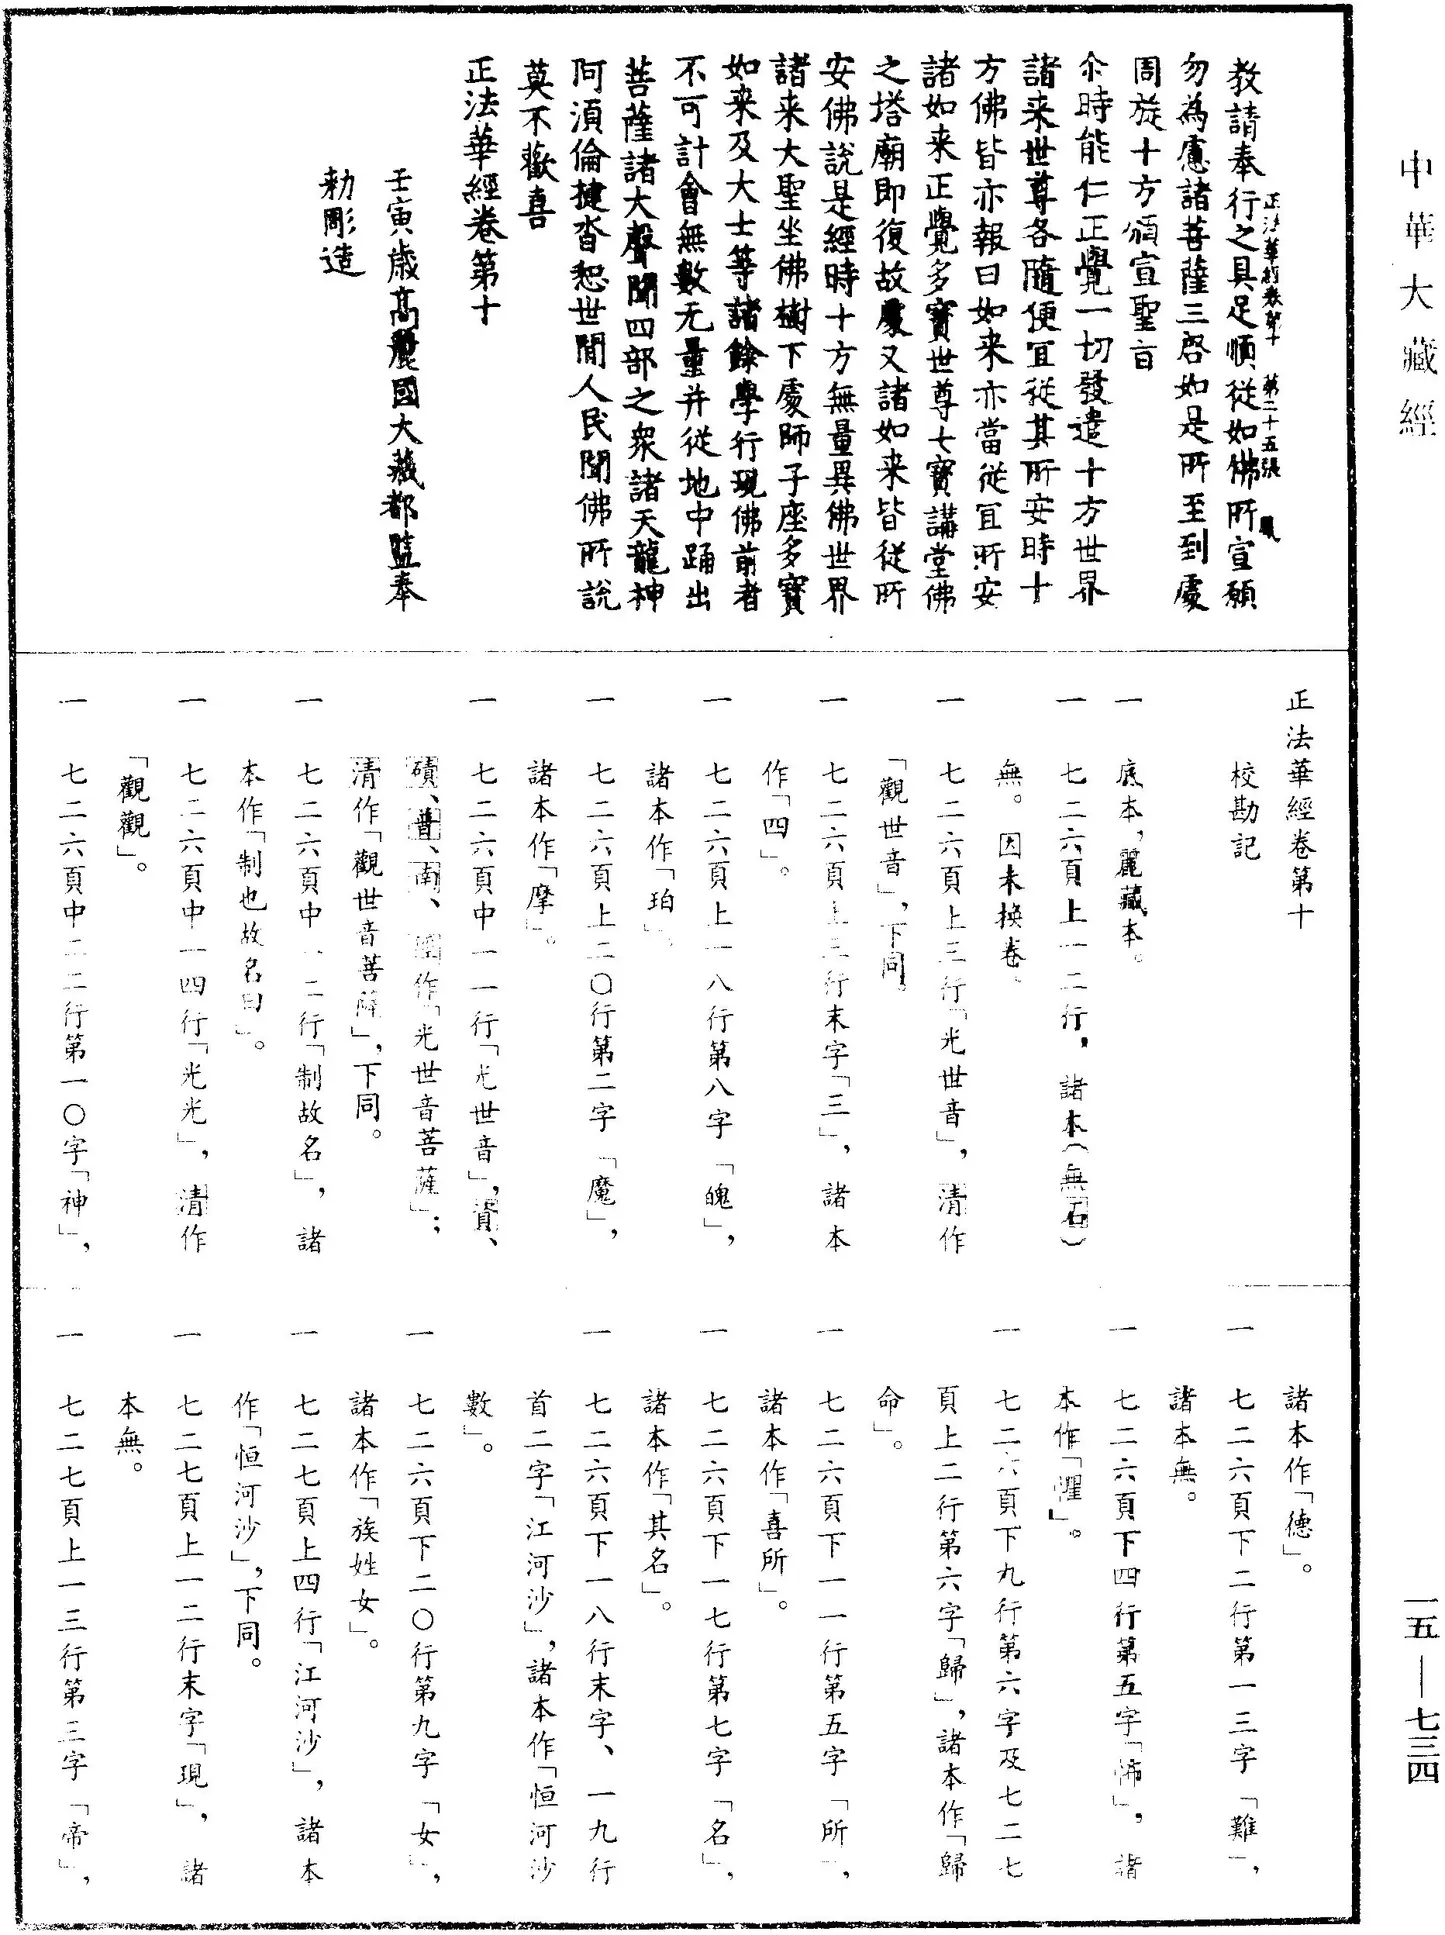 中華大藏經
教請奉行之具足順從如佛所宣願
正法華經卷第十　第二十五張
勿為慮諸菩薩三啓如是所至到處
周旋十方頒宣聖旨
尒時能仁正覺一切發遣十方世界
諸来世尊各隨便宜従其所安時十
方佛皆亦報曰如来亦當従宜所安
諸如来正覺多寶世尊七寶講堂佛
之塔廟即復故處又諸如来皆従所
安佛說是經時十方無量異佛世界
諸来大聖坐佛樹下處師子座多寶
如来及大士等諸餘學行現佛前者
不可計會無數无量并從地中踊出
菩薩諸大聲聞四部之衆諸天龍神
阿須倫揵沓惒世間人民聞佛所說
莫不歡喜
正法華經卷第十
壬寅歳高麗國大藏都監奉
勑彫造
正法華經卷第十
校勘記
一　底本，麗藏本。
一　七二六頁上一二行，諸本（無石）
無。因未換卷。
一　七二六頁上三行「光世音」，清作
「觀世音」，下同。
一　七二六頁上三行末字「三」，諸本
作「四」。
一　七二六頁上一八行第八字「魄」，
諸本作「珀」。
一　七二六頁上二〇行第二字「魔」，
諸本作「摩」。
一　七二六頁中一一行「光世音」，資、
磧、普、南、徑作「光世音菩薩」；
清作「觀世音菩薩」，下同。
一　七二六頁中一二行「制故名」，諸
本作「制也故名曰」。
一　七二六頁中一四行「光光」，清作
「觀觀」。
一　七二六頁中二二行第一〇字「神」，
諸本作「德」。
一　七二六頁下二行第一三字「難」，
諸本無。
一　七二六頁下四行第五字「怖」，諸
本作「懼」。
一　七二六頁下九行第六字及七二七
頁上二行第六字「歸」，諸本作「歸
命」。
一　七二六頁下一一行第五字「所」，
諸本作「喜所」。
一　七二六頁下一七行第七字「名」，
諸本作「其名」。
一　七二六頁下一八行末字、一九行
首二字「江河沙」，諸本作「恒河沙
數」。
一　七二六頁下二〇行第九字「女」，
諸本作「族姓女」。
一　七二七頁上四行「江河沙」，諸本
作「恒河沙」，下同。
一　七二七頁上一二行末字「現」，諸
本無。
一　七二七頁上一三行第三字「帝」，
一五—七三四